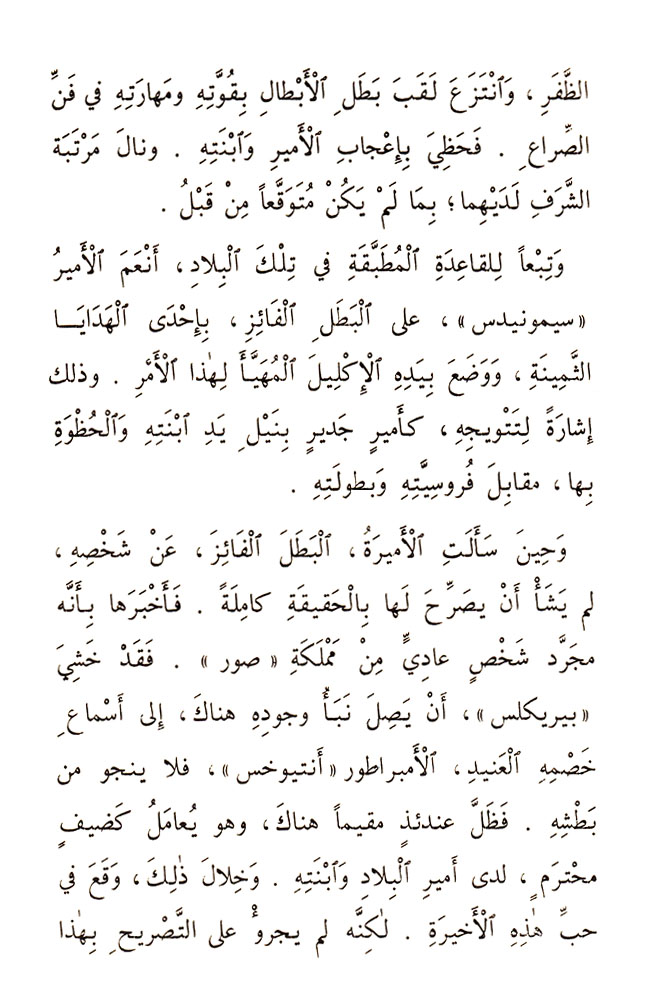 الظَّفَرِ ، وَٱنْتَزَعَ لَقَبَ بَطَلِ ٱلْأَبْطالِ بِقُوَّتِهِ ومَهارَتِهِ في فَنِّ
الصِّراعِ . فَحَظِيَ بِإِعْجابِ ٱلْأَميرِ وَٱبْنَتِهِ . ونالَ مَرْتَبَة
الشَّرَفِ لَدَيْهِما ؛ بِمَا لَمْ يَكُنْ مُتَوَقَّعاً مِنْ قَبْلُ .
وَتِبْعاً لِلقاعِدَةِ ٱلْمُطَبَّقَةِ في تِلْكَ ٱلْبِلادِ ، أَنْعَمَ ٱلْأَميرُ
«سيمونيدس» ، على ٱلْبَطَلِ ٱلْفَائِزِ ، بِإِحْدَى ٱلْهَدَايَـا
الثَّمِينَةِ ، وَوَضَعَ بِيَدِهِ ٱلْإِكْلِيلَ ٱلْمُهَيَّـأَ لِهٰذا ٱلْأَمْرِ . وذلك
إشارَةً لِتَتْويجِهِ ، كأَميرٍ جَديرٍ بِنَيْلِ يَدِ ٱبْنَتِهِ وَٱلْحُظْوَةِ
بِها ، مقابِلَ فُروسِيَّتِهِ وَبطولَتِهِ .
وَحِينَ سَأَلَتِ ٱلْأَميرَةُ ، ٱلْبَطَلَ ٱلْفَائِزَ ، عَنْ شَخْصِهِ ،
لم يَشَأْ أَنْ يصَرِّحَ لَها بِالْحَقيقَةِ كامِلَةً . فَأَخْبَرَها بِأَنَّه
مجَرَّد شَخْصٍ عادِيٍّ مِنْ مَمْلَكَةِ « صور » . فَقَدْ خَشِيَ
«بيريكلس» ، أَنْ يَصِلَ نَبَـأُ وجودِهِ هناكَ ، إِلى أَسْماعِ
خَصْمِهِ ٱلْعَنيدِ ، ٱلْأمبراطور «أَنتيوخس» ، فلا ينجو من
بَطْشِهِ . فَظَلَّ عندئذٍ مقيماً هناكَ ، وهو يُعامَلُ كَضيفٍ
محْترَمٍ ، لدى أَميرِ ٱلْبِلادِ وَٱبْنَتِهِ . وَخِلالَ ذٰلِكَ ، وَقَعَ في
حبِّ هٰذِهِ ٱلْأَخيرَةِ . لٰكِنَّه لم يجروْ على التَّصْريحِ بِهٰذا